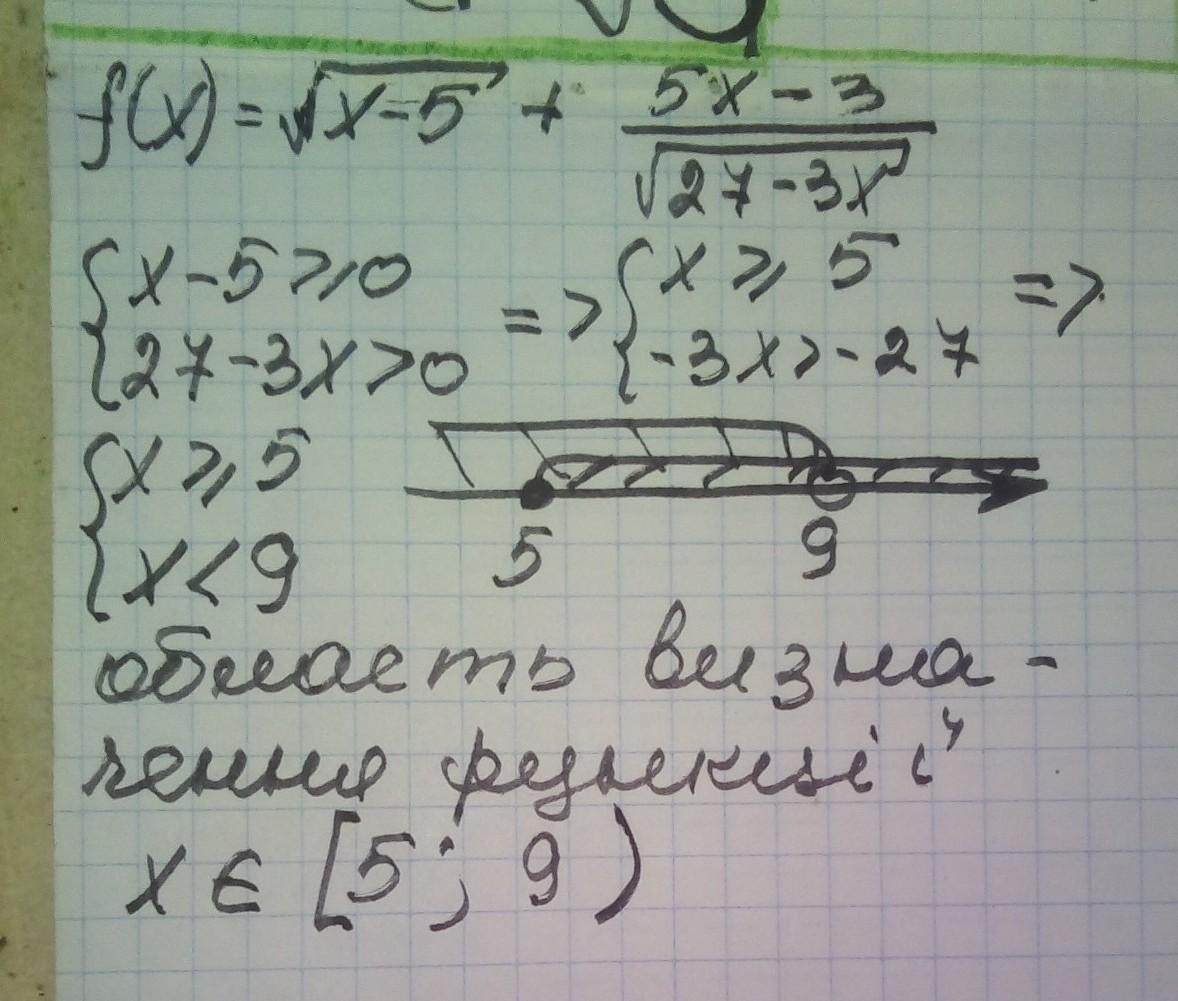 f(x) = √(x-5) + (5x-3)/√(27-3x)
{ x-5 ≥ 0 ; 27-3x > 0 => { x ≥ 5 ; -3x > -27 =>
{ x ≥ 5 ; x < 9
5 9
область визна-
чення функції
x ∈ [5; 9)